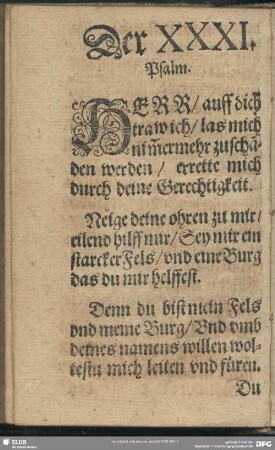 Der XXXI.
Psalm.
HERR/ auff dich
traw ich/ las mich
nimmermehr zuschā-
den werden/ errette mich
durch deine Gerechtigkeit.
Neige deine ohren zu mir/
eilend hilff mir/ Sey mir ein
starcker Fels/ vnd eine Burg
das du mir helffest.
Denn du bist mein Fels
vnd meine Burg/ Vnd vmb
deines namens willen wol-
testu mich leiten vnd füren.
Du
SLUB